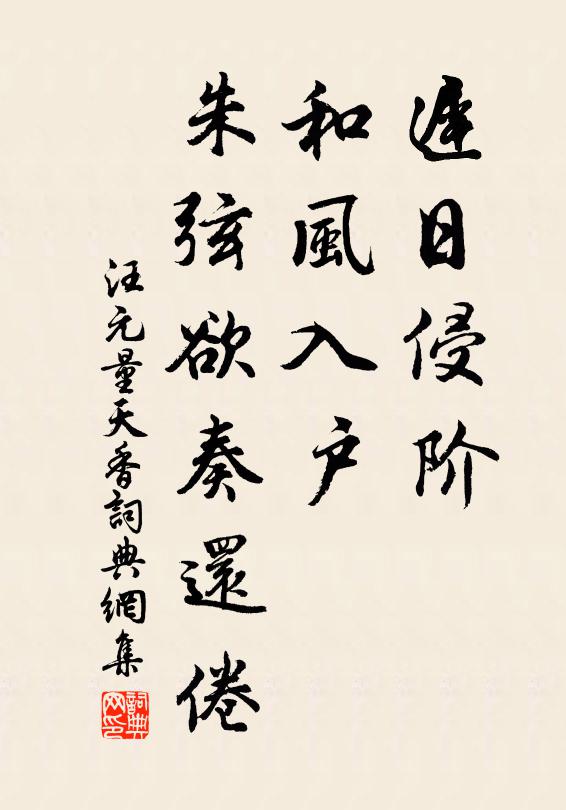 遲日侵阶
和風入户
朱弦欲奏還倦
汪元量天香詞典網集
詞典网印